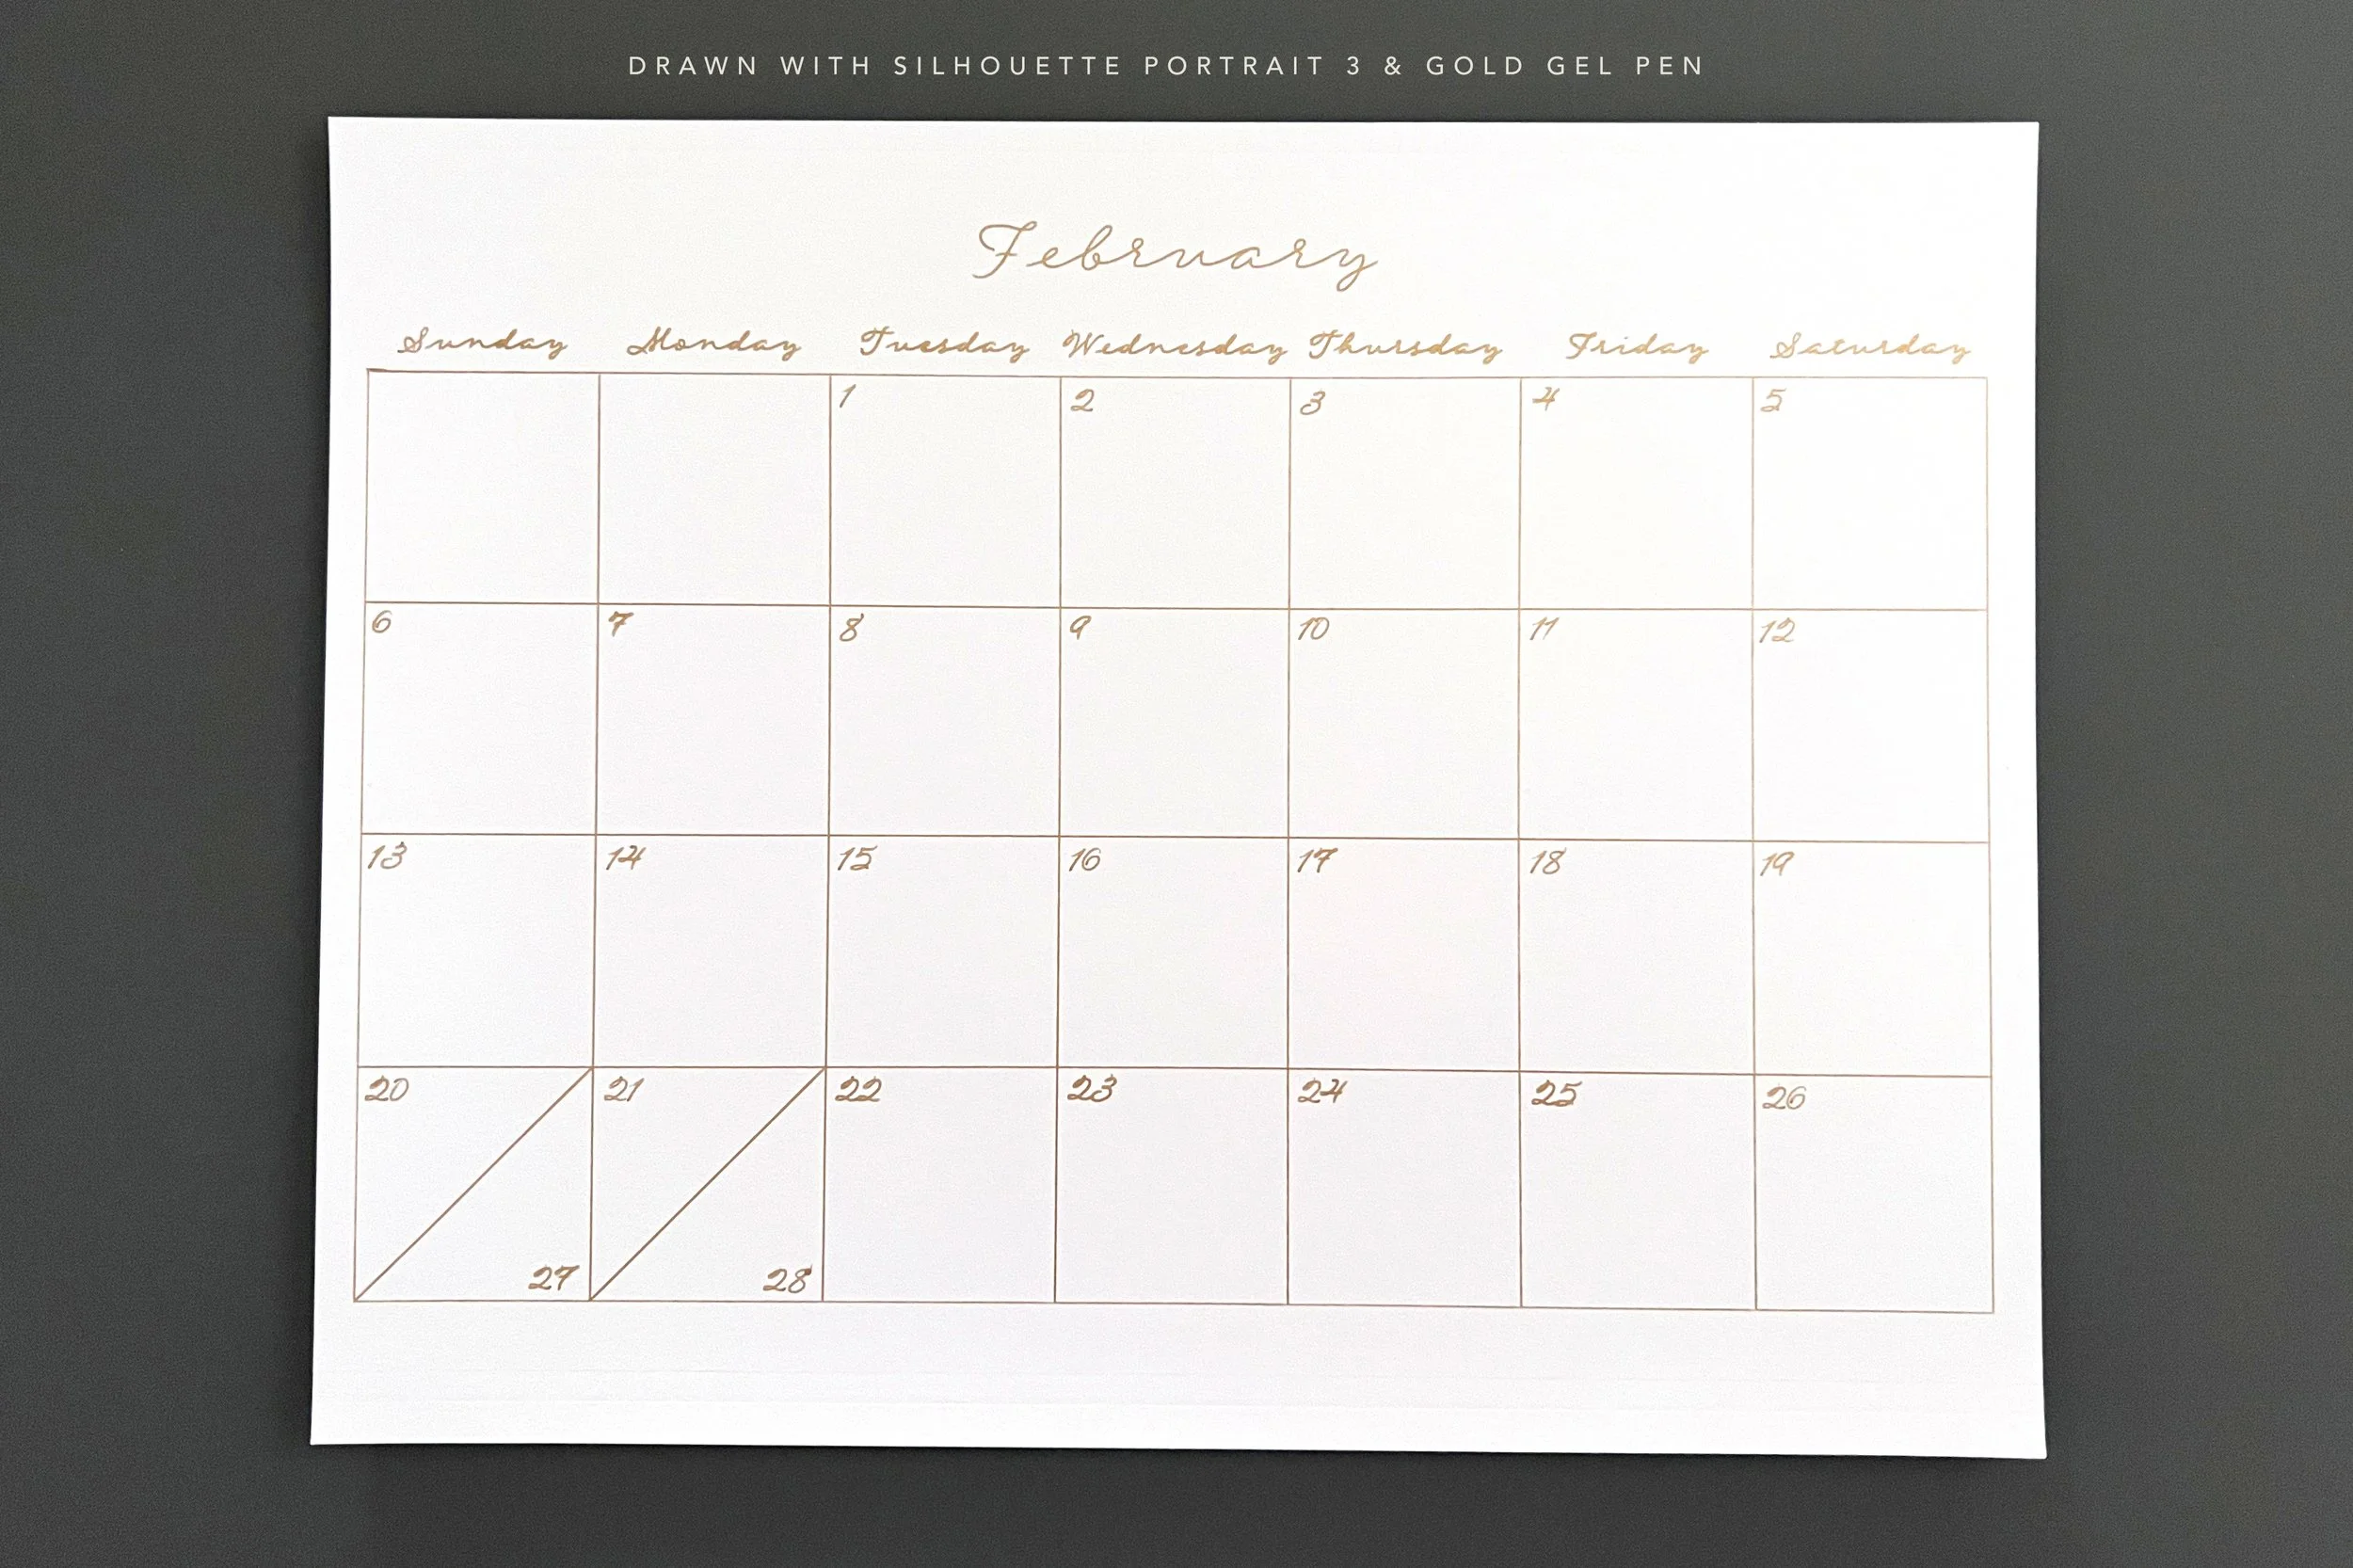 DRAWN WITH SILHOUETTE PORTRAIT 3 & GOLD GEL PEN
February
Sunday Monday Tuesday Wednesday Thursday Friday Saturday
1 2 3 4 5
6 7 8 9 10 11 12
13 14 15 16 17 18 19
20 21 22 23 24 25 26
27 28